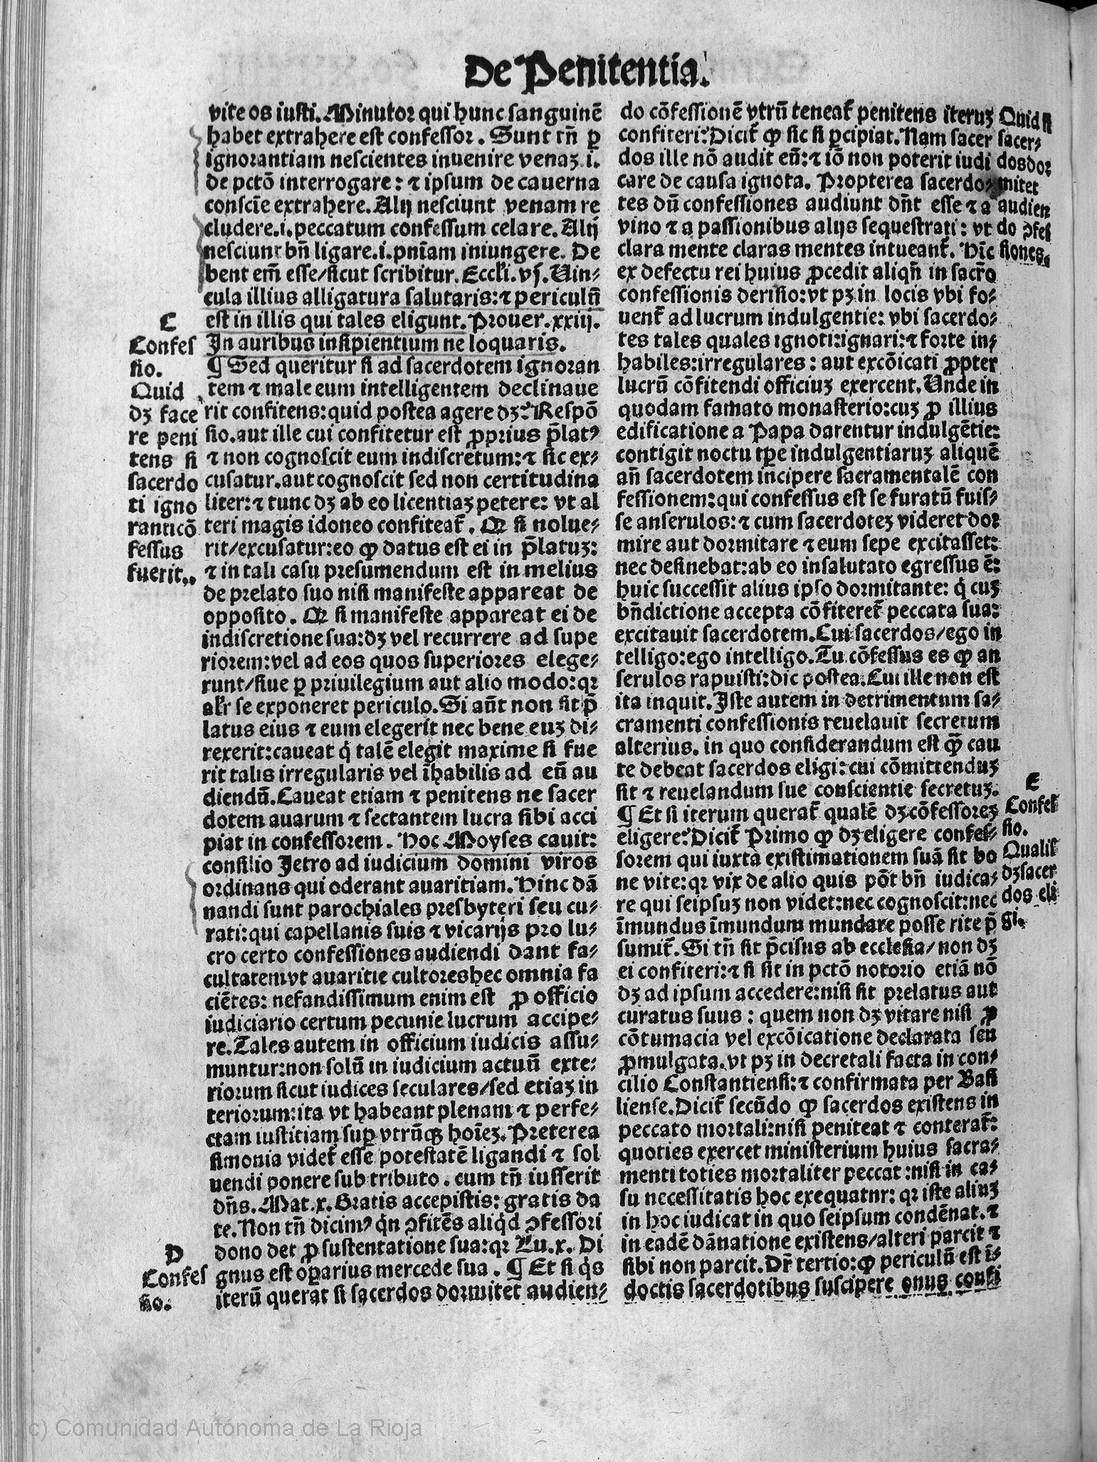 De Penitentia.
vite os iusti. Minutor qui hunc sanguinē
habet extrahere est confessor. Sunt tñ ꝑ
ignorantiam nescientes inuenire venaꝫ .i.
de pctō interrogare: ⁊ ipsum de cauerna
consciē extrahere. Alij nesciunt venam re
cludere .i. peccatum confessum celare. Alij
nesciunt bñ ligare .i. pniam iniungere. De
bent em̄ esse/sicut scribitur. Eccli. vj. Uin⸗
cula illius alligatura salutaris: ⁊ periculū
est in illis qui tales eligunt. Prouer. xxiij.
In auribus insipientium ne loquaris.
¶ Sed queritur si ad sacerdotem ignoran
tem ⁊ male eum intelligentem declinaue
rit confitens: quid postea agere dꝫ? Respō
sio. aut ille cui confitetur est ꝓprius p̄latꝰ
⁊ non cognoscit eum indiscretum: ⁊ sic ex⸗
cusatur. aut cognoscit sed non certitudina
liter: ⁊ tunc dꝫ ab eo licentiaꝫ petere: vt al
teri magis idoneo confiteat̄. Qꝫ si nolue⸗
rit/excusatur: eo ꝙ datus est ei in p̄latuꝫ:
⁊ in tali casu presumendum est in melius
de prelato suo nisi manifeste appareat de
opposito. Qꝫ si manifeste appareat ei de
indiscretione sua: dꝫ vel recurrere ad supe
riorem: vel ad eos quos superiores elege⸗
runt/siue ꝑ priuilegium aut alio modo: qꝛ
alr̄ se exponeret periculo. Si aūt non sit p̄
latus eius ⁊ eum elegerit nec bene euꝫ di⸗
rexerit: caueat q̇ talē elegit maxime si fue
rit talis irregularis vel īhabilis ad eū au
diendū. Caueat etiam ⁊ penitens ne sacer
dotem auarum ⁊ sectantem lucra sibi acci
piat in confessorem. Hoc Moyses cauit:
consilio Jetro ad iudicium domini viros
ordinans qui oderant auaritiam. Hinc dā
nandi sunt parochiales presbyteri seu cu⸗
rati: qui capellanis suis ⁊ vicarijs pro lu⸗
cro certo confessiones audiendi dant fa⸗
cultatem vt auaritie cultores hec omnia fa
ciētes: nefandissimum enim est ꝓ officio
iudiciario certum pecunie lucrum accipe⸗
re. Tales autem in officium iudicis assu⸗
muntur: non solū in iudicium actuū exte⸗
riorum sicut iudices seculares/sed etiaꝫ in
teriorum: ita vt habeant plenam ⁊ perfe⸗
ctam iustitiam suꝑ vtrūqꝫ hoīeꝫ. Preterea
simonia videt̄ esse potestatē ligandi ⁊ sol
uendi ponere sub tributo. cum tñ iusserit
dñs. Mat. x. Gratis accepistis: gratis da
te. Non tñ dicimꝰ qn̄ ꝯfitēs aliqd̄ ꝯfessori
dono det ꝓ sustentatione sua: qꝛ Lu. x. Di
gnus est oꝑarius mercede sua. ¶ Et si q̇s
iterū querat si sacerdos dormitet audien⸗
C
Confes
sio.
Quid
dꝫ face
re peni
tens si
sacerdo
ti igno
ranti cō
fessus
fuerit.
D
Confes
sio.
do cōfessionē vtrū teneat̄ penitens iteruꝫ
confiteri: Dicit̄ ꝙ sic si ꝑcipiat. Nam sacer
dos ille nō audit eū: ⁊ iō non poterit iudi
care de causa ignota. Propterea sacerdo⸗
tes dū confessiones audiunt dn̄t esse ⁊ a
vino ⁊ a passionibus alijs sequestrati: vt
clara mente claras mentes intueant̄. Hic
ex defectu rei huius ꝓcedit aliqn̄ in sacrō
confessionis derisio: vt pꝫ in locis vbi fo⸗
uent̄ ad lucrum indulgentie: vbi sacerdo⸗
tes tales quales ignoti: ignari: ⁊ forte in⸗
habiles: irregulares: aut excōicati ꝓpter
lucrū cōfitendi officiuꝫ exercent. Unde in
quodam famato monasterio: cuꝫ ꝓ illius
edificatione a Papa darentur indulgētie:
contigit noctu tꝑe indulgentiaruꝫ aliquē
añ sacerdotem incipere sacramentalē con
fessionem: qui confessus est se furatū fuis⸗
se anserulos: ⁊ cum sacerdoteꝫ videret dor
mire aut dormitare ⁊ eum sepe excitasset:
nec desinebat: ab eo insalutato egressus ē:
huic successit alius ipso dormitante: q̇ cuꝫ
bn̄dictione accepta cōfiteret̄ peccata sua:
excitauit sacerdotem. Cui sacerdos/ego in
telligo: ego intelligo. Tu cōfessus es ꝙ an
serulos rapuisti: dic postea. Cui ille non est
ita inquit. Iste autem in detrimentum sa⸗
cramenti confessionis reuelauit secretum
alterius. in quo considerandum est ꝙ̄ cau
te debeat sacerdos eligi: cui cōmittenduꝫ
sit ⁊ reuelandum sue conscientie secretuꝫ.
¶ Et si iterum querat̄ qualē dꝫ cōfessoreꝫ
eligere: Dicit̄ Primo ꝙ dꝫ eligere confes⸗
sorem qui iuxta existimationem suā sit bo
ne vite: qꝛ vix de alio quis pōt bñ iudica⸗
re qui seipsuꝫ non videt: nec cognoscit: nec
īmundus īmundum mundare posse rite p̄
sumit̄. Si tñ sit p̄cisus ab ecclesia/non dꝫ
ei confiteri: ⁊ si sit in pctō notorio etiā nō
dꝫ ad ipsum accedere: nisi sit prelatus aut
curatus suus: quem non dꝫ vitare nisi ꝓ
cōtumacia vel excōicatione declarata seu
ꝓmulgata. vt pꝫ in decretali facta in con⸗
cilio Constantiensi: ⁊ confirmata per Basi
liense. Dicit̄ secūdo ꝙ sacerdos existens in
peccato mortali: nisi peniteat ⁊ conterat̄:
quoties exercet ministerium huius sacra⸗
menti toties mortaliter peccat: nisi in ca⸗
su necessitatis hoc exequatur: qꝛ iste aliuꝫ
in hoc iudicat in quo seipsum condēnat. ⁊
in eadē dānatione existens/alteri parcit ⁊
sibi non parcit. Dr̄ tertio: ꝙ periculū est ī⸗
doctis sacerdotibus suscipere onus confi
Quid si
sacer⸗
dos dor
mitet
audien
do ꝯfes
siones.
E
Confes
sio.
Qualis
dꝫ sacer
dos eli
gi.
(c) Comunidad Autónoma de La Rioja